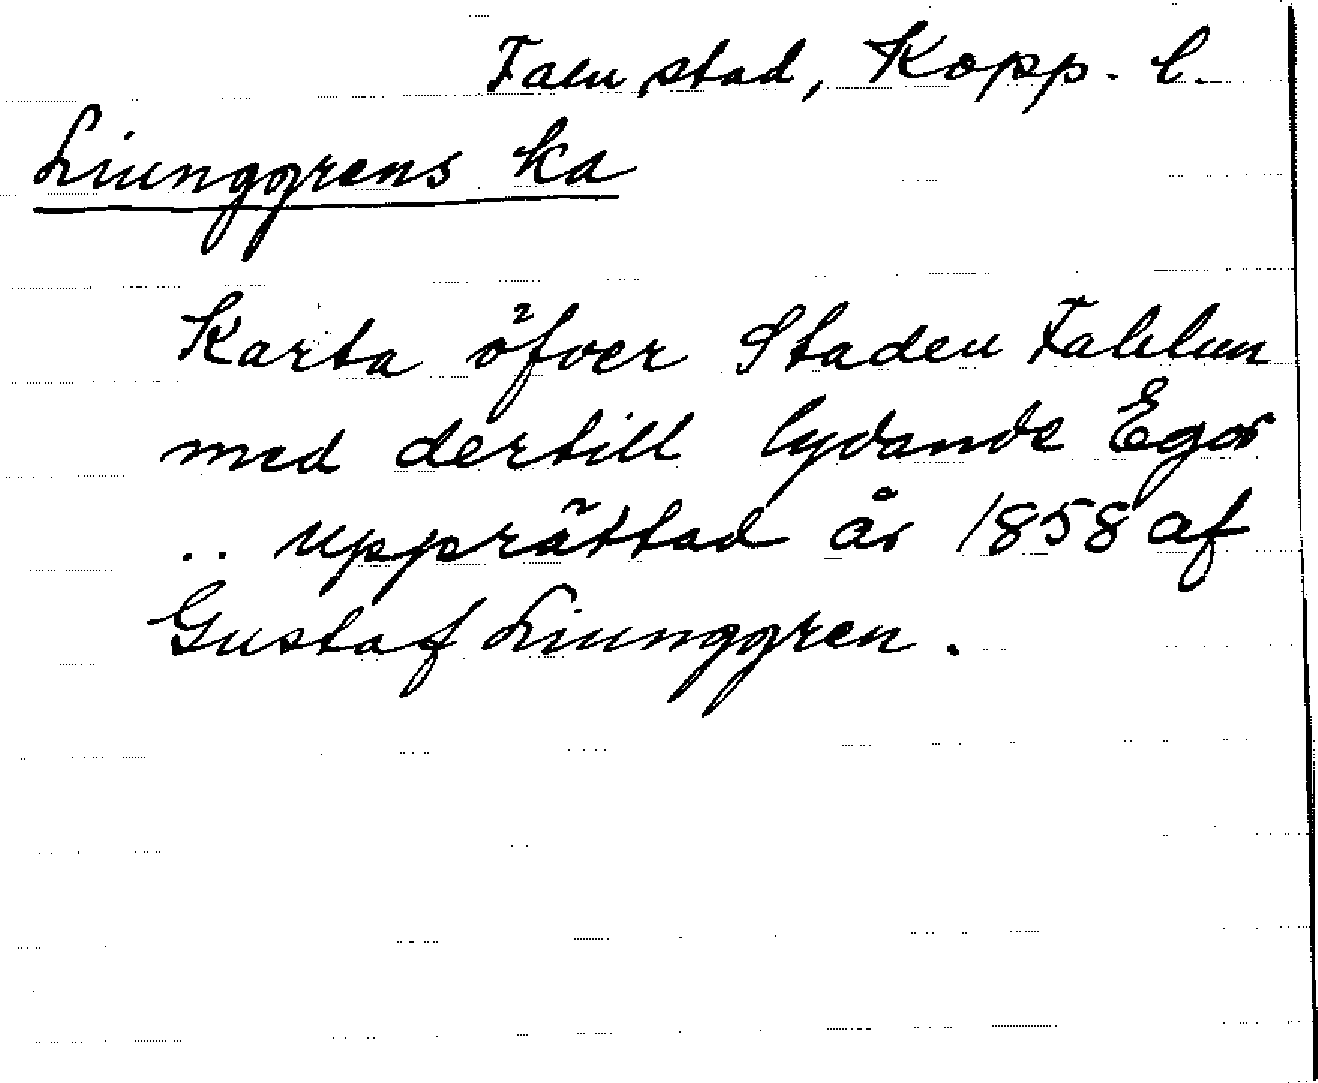 Falu stad, Kopp. l.
Liunggrens ka
Karta öfver Staden Fahlun
med dertill lydande Egor
.. upprättad år 1858 af
Gustaf Liunggren.